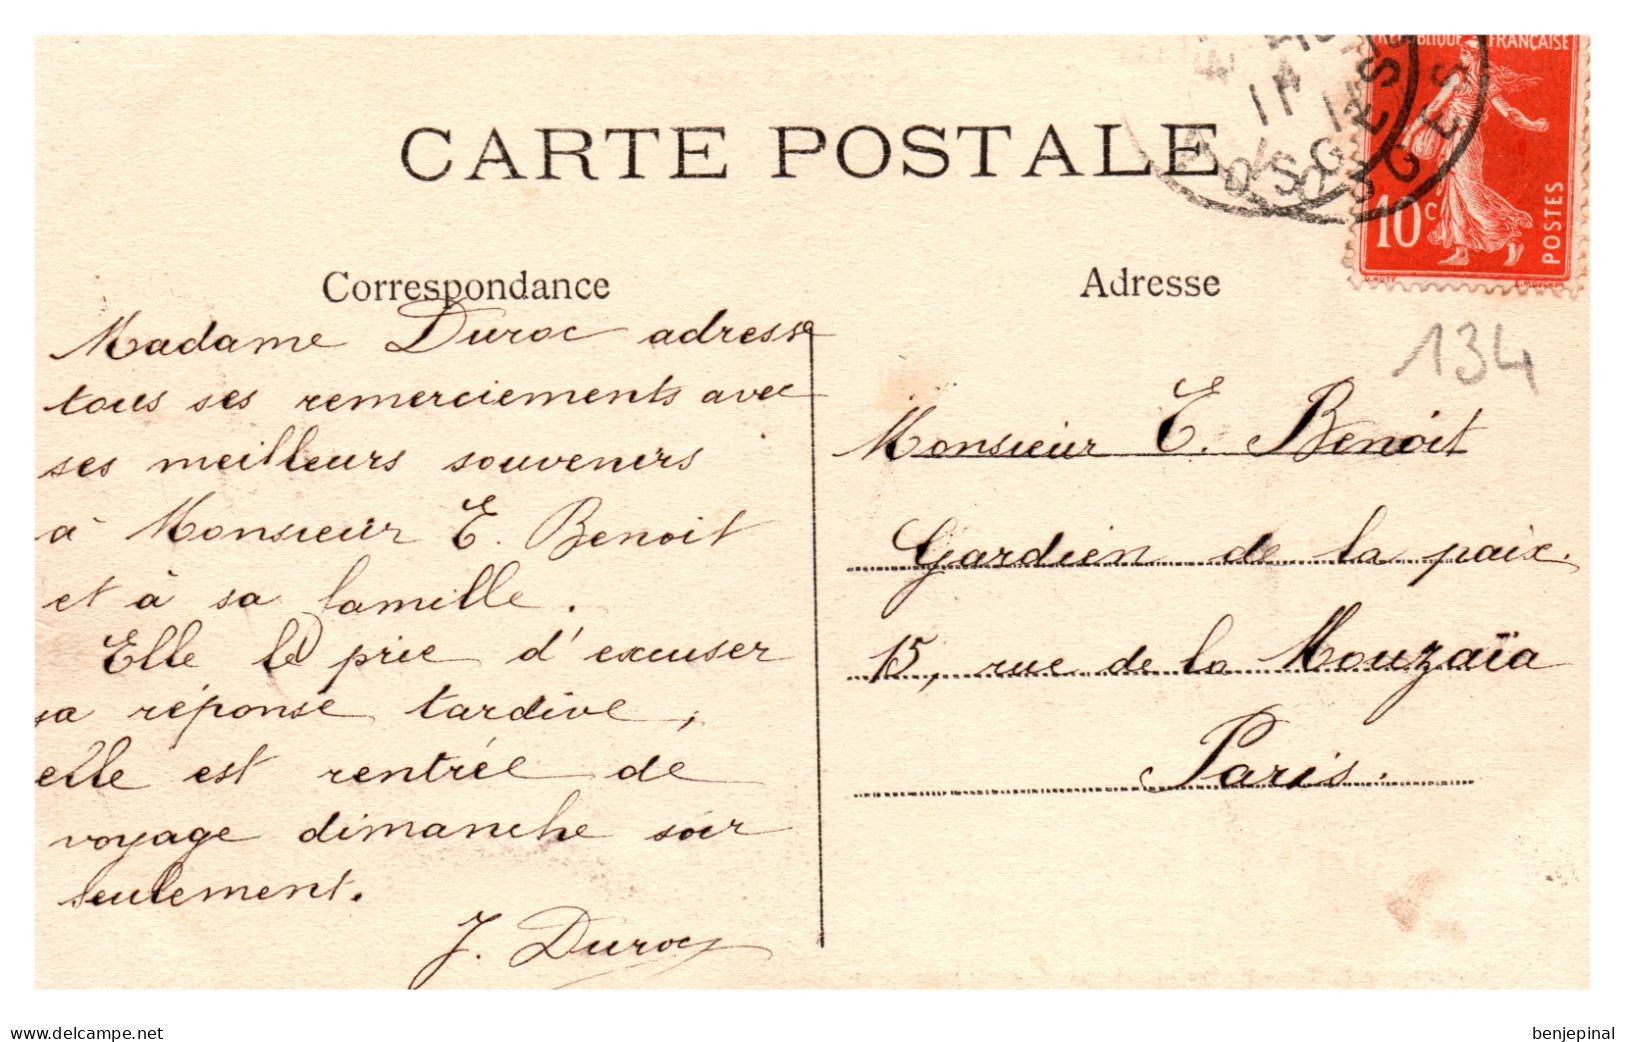 CARTE POSTALE
RÉPUBLIQUE FRANÇAISE
10 c
POSTES
VOSGES
11
Correspondance
Madame Duroc adresse
tous ses remerciements avec
ses meilleurs souvenirs
à Monsieur E. Benoit
et à sa famille.
Elle le prie d'excuser
sa réponse tardive,
elle est rentrée de
voyage dimanche soir
seulement.
J. Duroc
Adresse
134
Monsieur E. Benoit
Gardien de la paix.
15, rue de la Mouzaïa
Paris.
www.delcampe.net
benjepinal